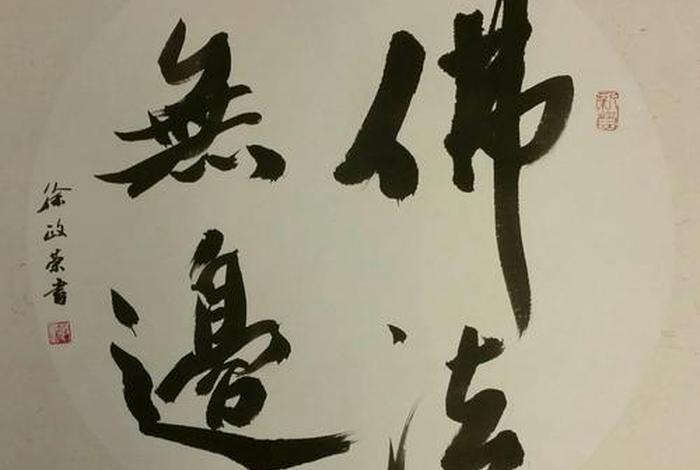 佛法
無邊
徐政荣書